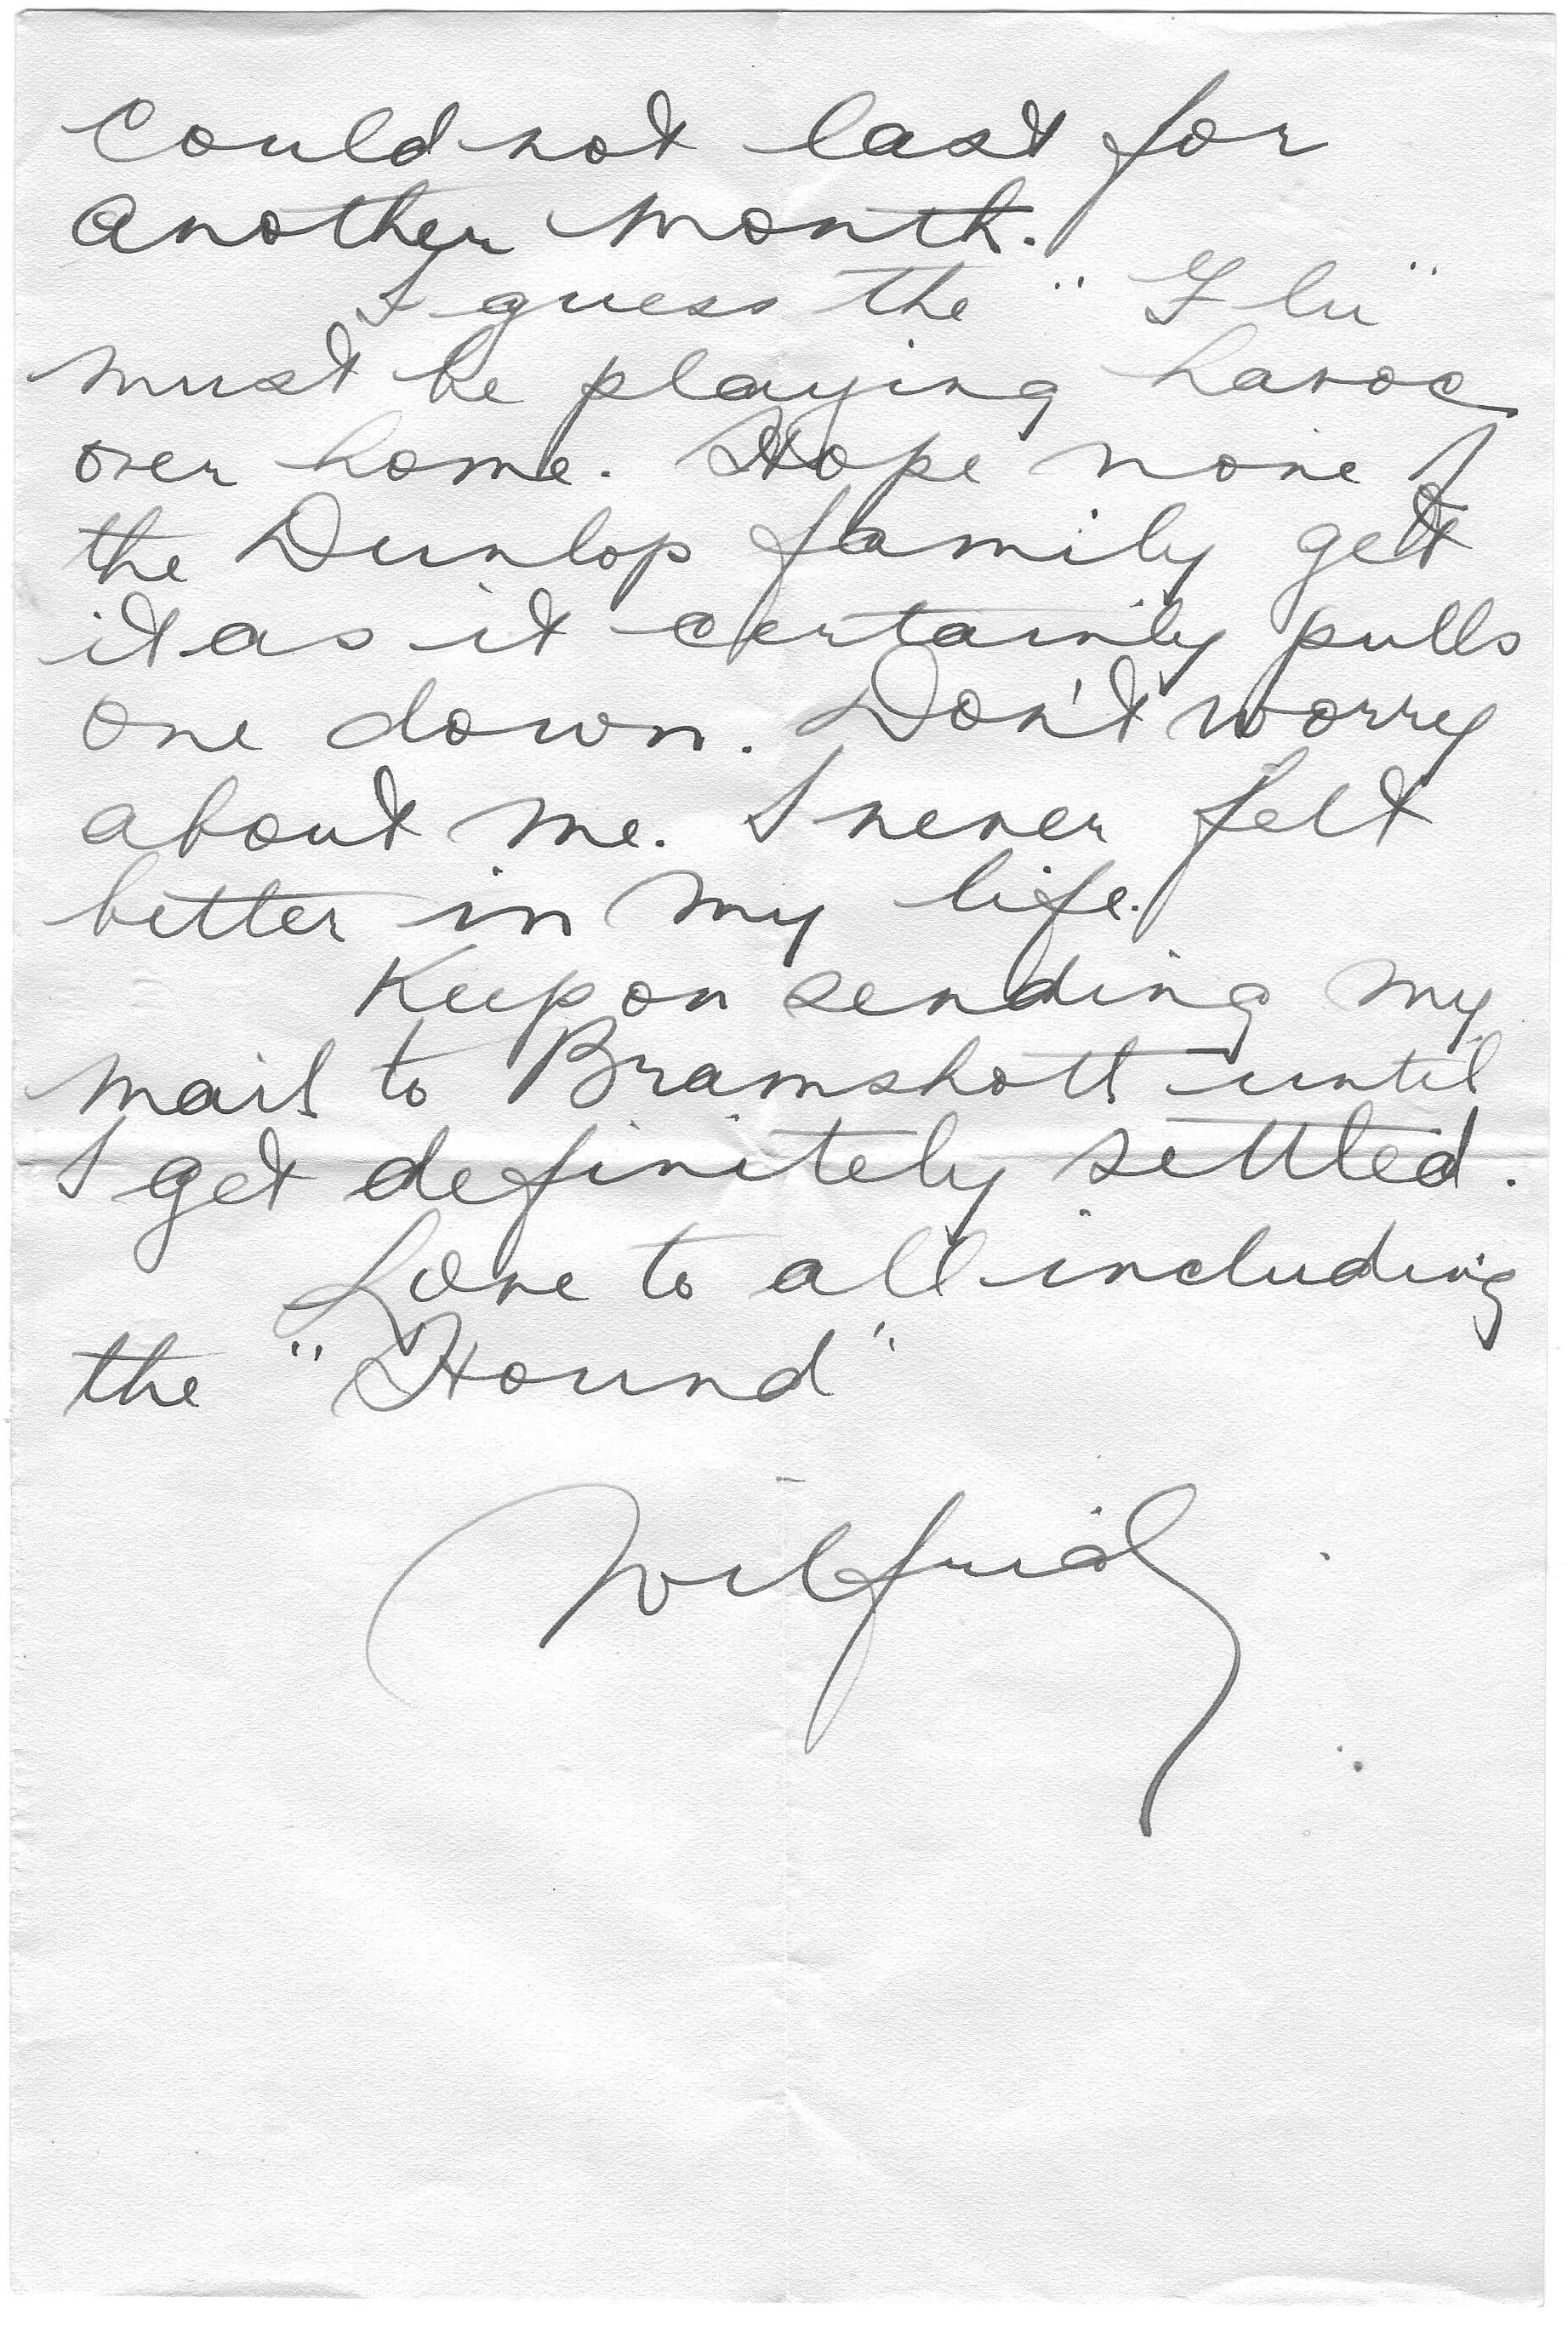 could not last for
another month.
I guess the "Flu"
must be playing havoc
over home. Hope none of
the Dunlop family get
it as it certainly pulls
one down. Don't worry
about me. I never felt
better in my life.
Keep on sending my
mail to Bramshott until
I get definitely settled.
Love to all including
the "Hound"
Wilfrid